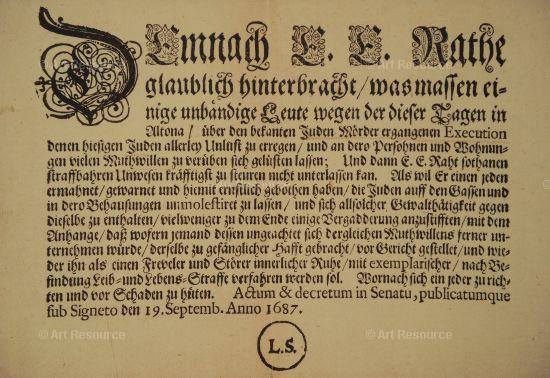 DEmnach E. E. Rathe
glaublich hinterbracht / was massen ei-
nige unbändige Leute wegen der dieser Tagen in
Altona / über den bekanten Juden Mörder ergangenen Execution
denen hiesigen Juden allerley Unlust zu erregen / und an dero Persohnen und Wohnun-
gen vielen Muthwillen zu verüben sich gelüsten lassen; Und dann E. E. Raht sothanen
straffbahren Unwesen kräfftigst zu steuren nicht unterlassen kan. Als wil Er einen jeden
ermahnet / gewarnet und hiemit ernstlich gebothen haben / die Juden auff den Gassen und
in dero Behausungen unmolestiret zu lassen / und sich allsolcher Gewalthätigkeit gegen
dieselbe zu enthalten / vielweniger zu dem Ende einige Vergadderung anzustifften / mit dem
Anhange / daß wofern jemand dessen ungeachtet sich dergleichen Muthwillens ferner un-
ternehmen würde / derselbe zu gefänglicher Hafft gebracht / vor Gericht gestellet / und wie-
der ihn als einen Freveler und Störer innerlicher Ruhe / mit exemplarischer / nach Be-
findung Leib- und Lebens-Straffe verfahren werden sol. Wornach sich ein jeder zu rich-
ten und vor Schaden zu hüten. Actum & decretum in Senatu, publicatumque
sub Signeto den 19. Septemb. Anno 1687.
L.S.
© Art Resource
© Art Resource
© Art Resource
© Art Resource